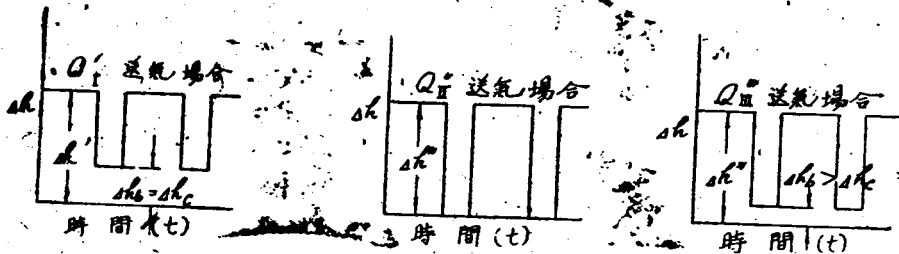 Q'_I 送氣場合
Δh
Δh'
Δh_b = Δh_c
時間 (t)
Q''_II 送氣場合
Δh
Δh''
時間 (t)
Q'''_III 送氣場合
Δh
Δh''
Δh_b > Δh_c
時間 (t)